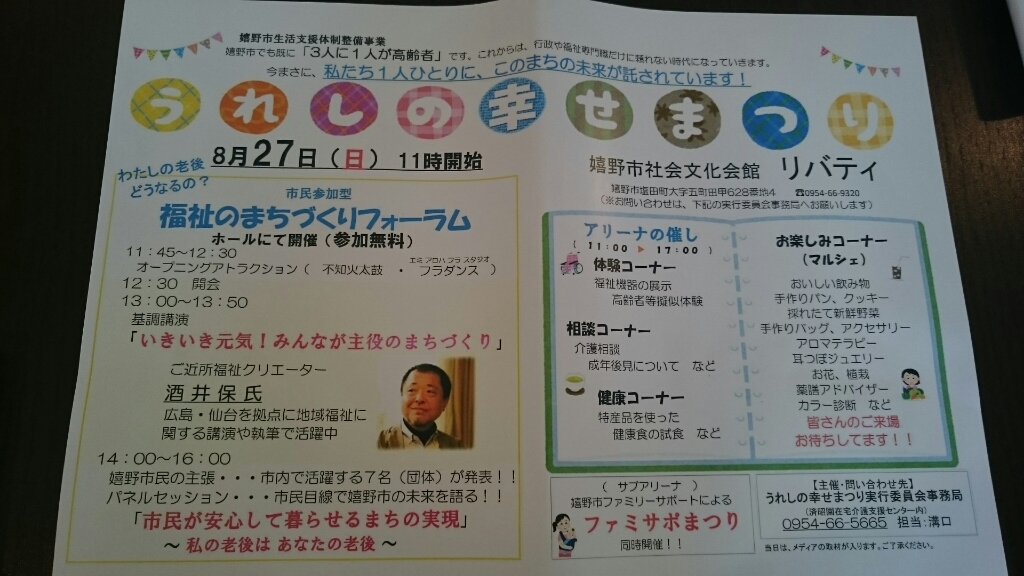 嬉野市生活支援体制整備事業
嬉野市でも既に「3人に1人が高齢者」です。これからは、行政や福祉専門職だけに頼れない時代になっていきます。
今まさに、私たち1人ひとりに、このまちの未来が託されています！
うれしの幸せまつり
8月27日（日） 11時開始
嬉野市社会文化会館 リバティ
嬉野市塩田町大字五町田甲628番地4 ☎0954-66-9320
（※お問い合わせは、下記の実行委員会事務局へお願いします）
わたしの老後
どうなるの？
市民参加型
福祉のまちづくりフォーラム
ホールにて開催（参加無料）
11：45～12：30
エミ アロハ フラ スタジオ
オープニングアトラクション（ 不知火太鼓 ・ フラダンス ）
12：30 開会
13：00～13：50
基調講演
「いきいき元気！みんなが主役のまちづくり」
ご近所福祉クリエーター
酒井保氏
広島・仙台を拠点に地域福祉に
関する講演や執筆で活躍中
14：00～16：00
嬉野市民の主張・・・市内で活躍する7名（団体）が発表！！
パネルセッション・・・市民目線で嬉野市の未来を語る！！
「市民が安心して暮らせるまちの実現」
～ 私の老後は あなたの老後 ～
アリーナの催し
（ 11：00 ▶ 17：00 ）
体験コーナー
福祉機器の展示
高齢者等擬似体験
相談コーナー
介護相談
成年後見について など
健康コーナー
特産品を使った
健康食の試食 など
お楽しみコーナー
（マルシェ）
おいしい飲み物
手作りパン、クッキー
採れたて新鮮野菜
手作りバッグ、アクセサリー
アロマテラピー
耳つぼジュエリー
お花、植栽
薬膳アドバイザー
カラー診断 など
皆さんのご来場
お待ちしてます！！
（ サブアリーナ ）
嬉野市ファミリーサポートによる
ファミサポまつり
同時開催！！
【主催・問い合わせ先】
うれしの幸せまつり実行委員会事務局
（済昭園在宅介護支援センター内）
0954-66-5665 担当：溝口
当日は、メディアの取材が入ります。ご了承ください。